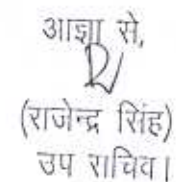 आज्ञा से,
(राजेन्द्र सिंह)
उप सचिव।